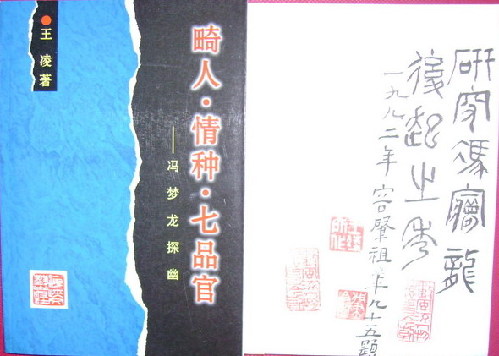 王凌著
畸人·情种·七品官
——冯梦龙探幽
研究馮夢龍
後起之秀
一九九二年容肇祖年九十五題